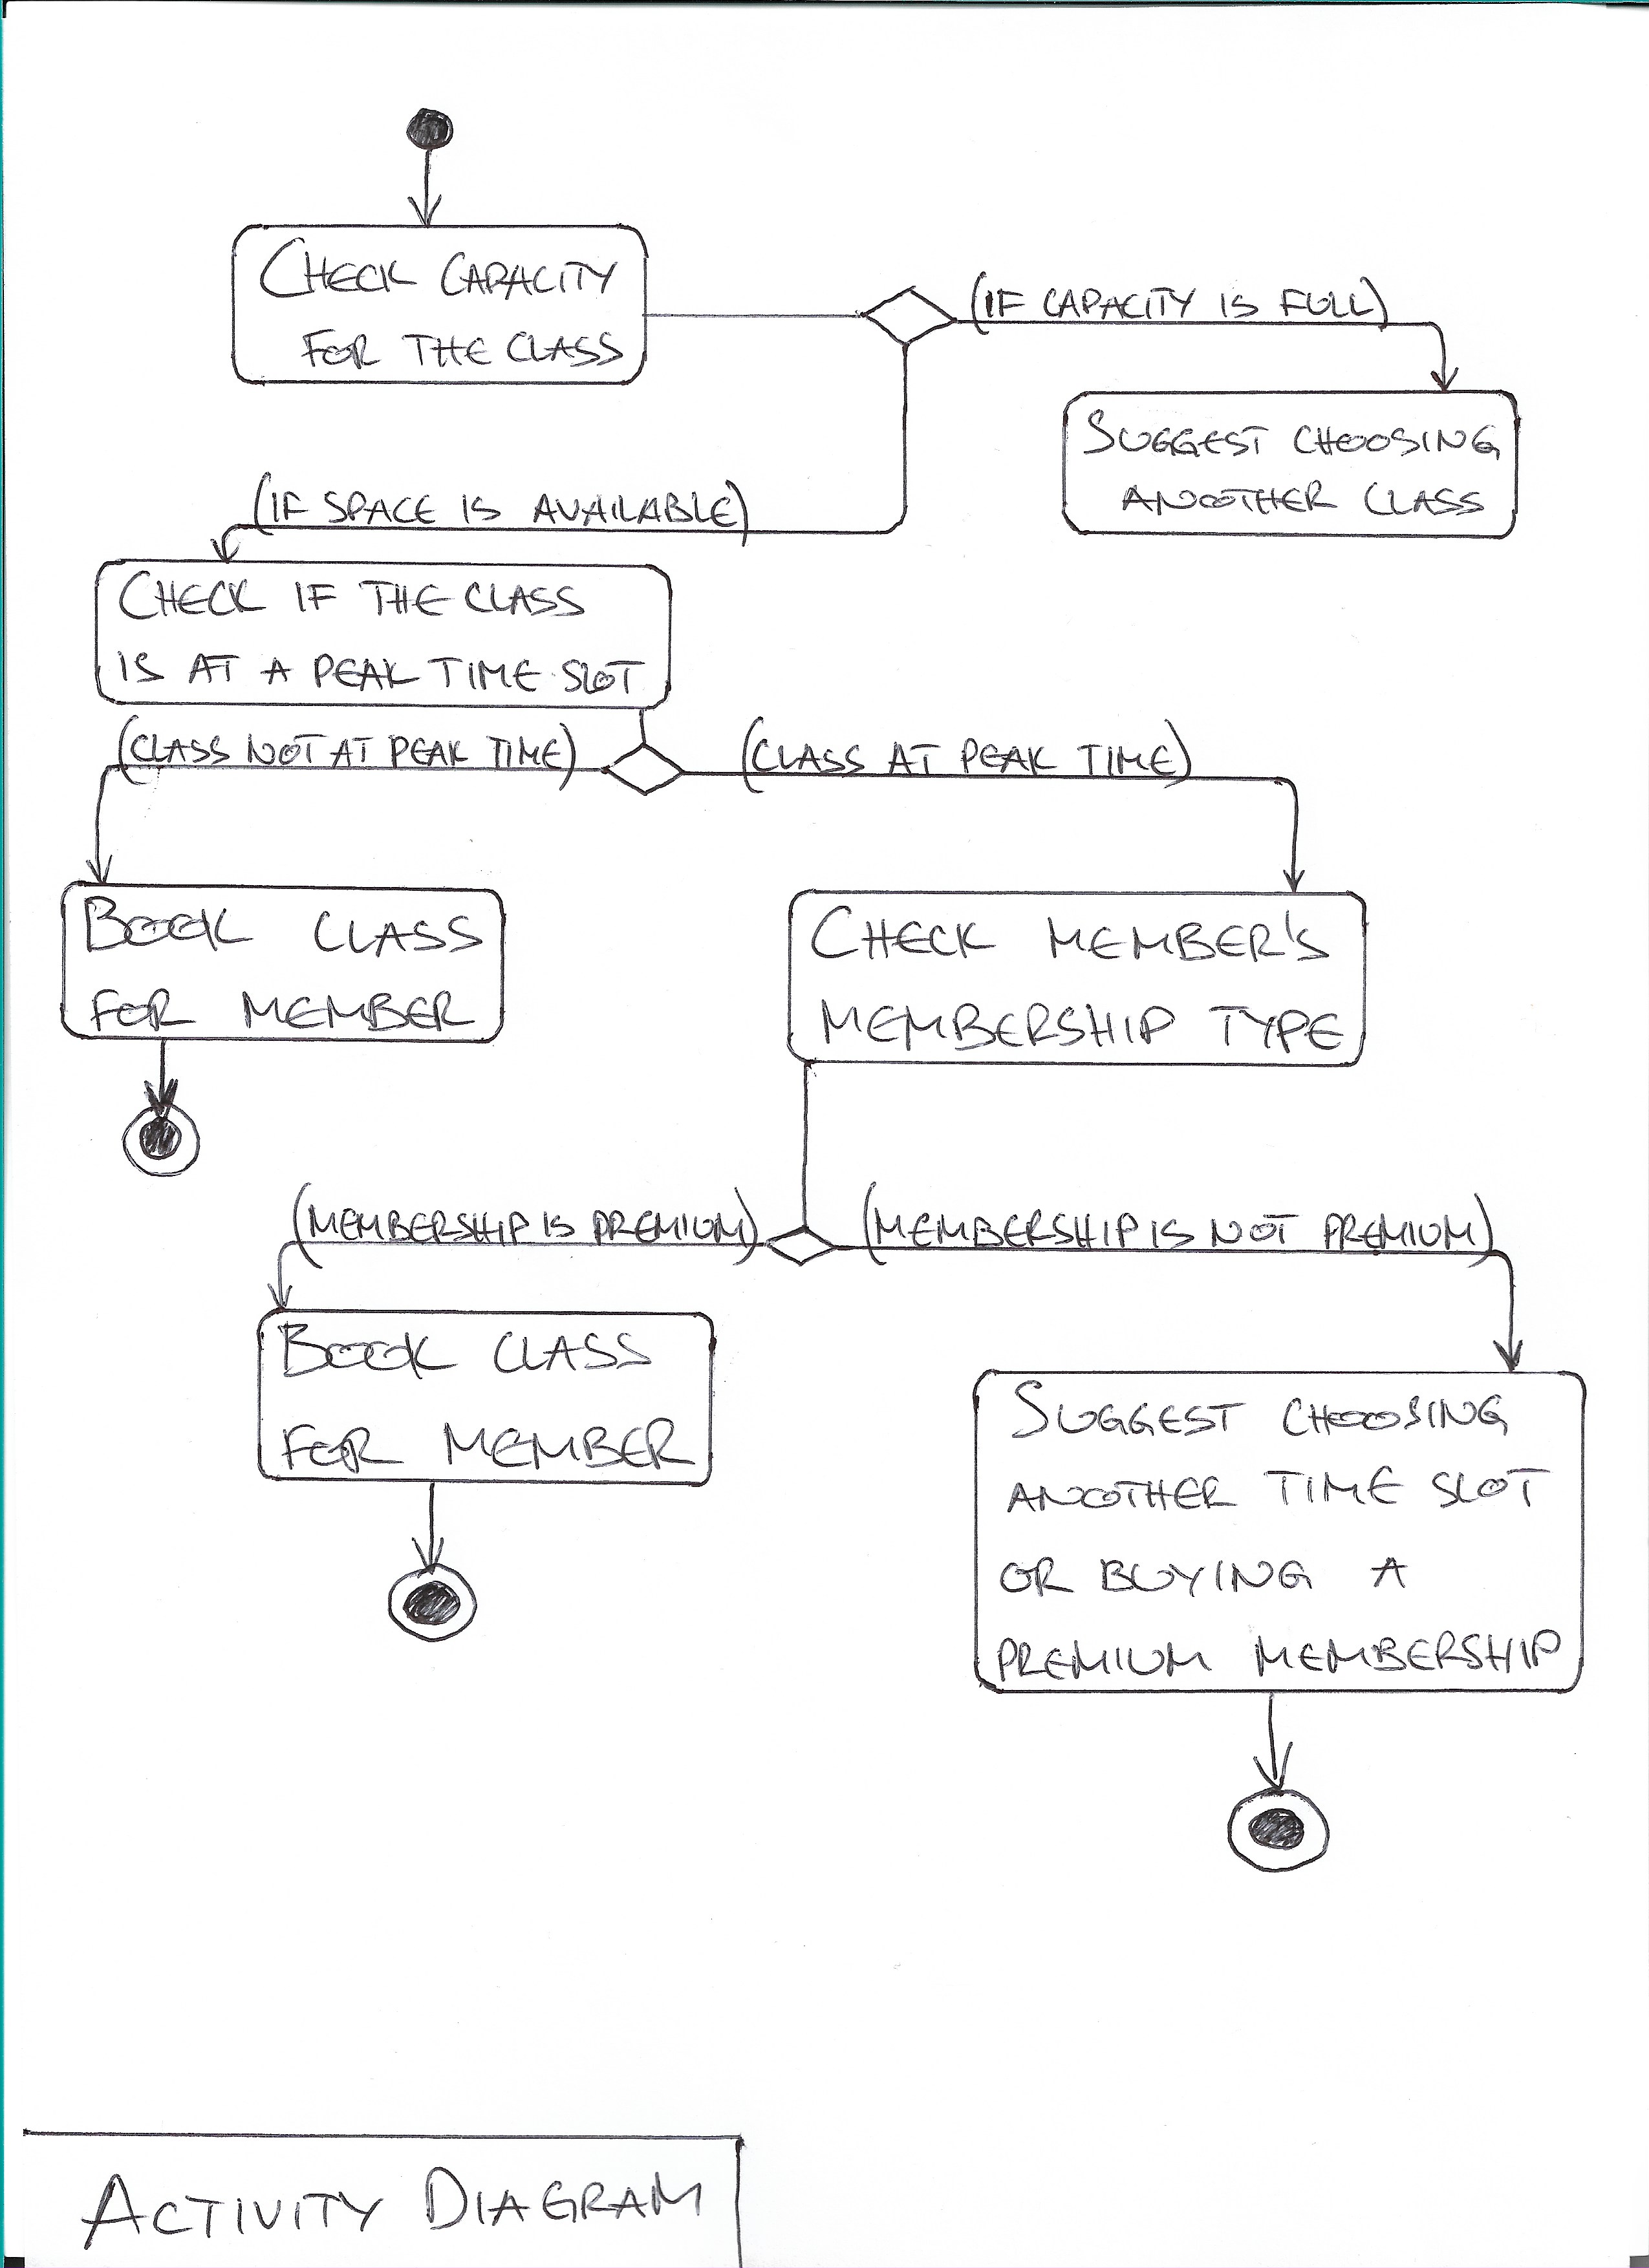 CHECK CAPACITY
FOR THE CLASS
(IF CAPACITY IS FULL)
SUGGEST CHOOSING
ANOTHER CLASS
(IF SPACE IS AVAILABLE)
CHECK IF THE CLASS
IS AT A PEAK TIME SLOT
(CLASS NOT AT PEAK TIME)
(CLASS AT PEAK TIME)
BOOK CLASS
FOR MEMBER
CHECK MEMBER'S
MEMBERSHIP TYPE
(MEMBERSHIP IS PREMIUM)
(MEMBERSHIP IS NOT PREMIUM)
BOOK CLASS
FOR MEMBER
SUGGEST CHOOSING
ANOTHER TIME SLOT
OR BUYING A
PREMIUM MEMBERSHIP
ACTIVITY DIAGRAM